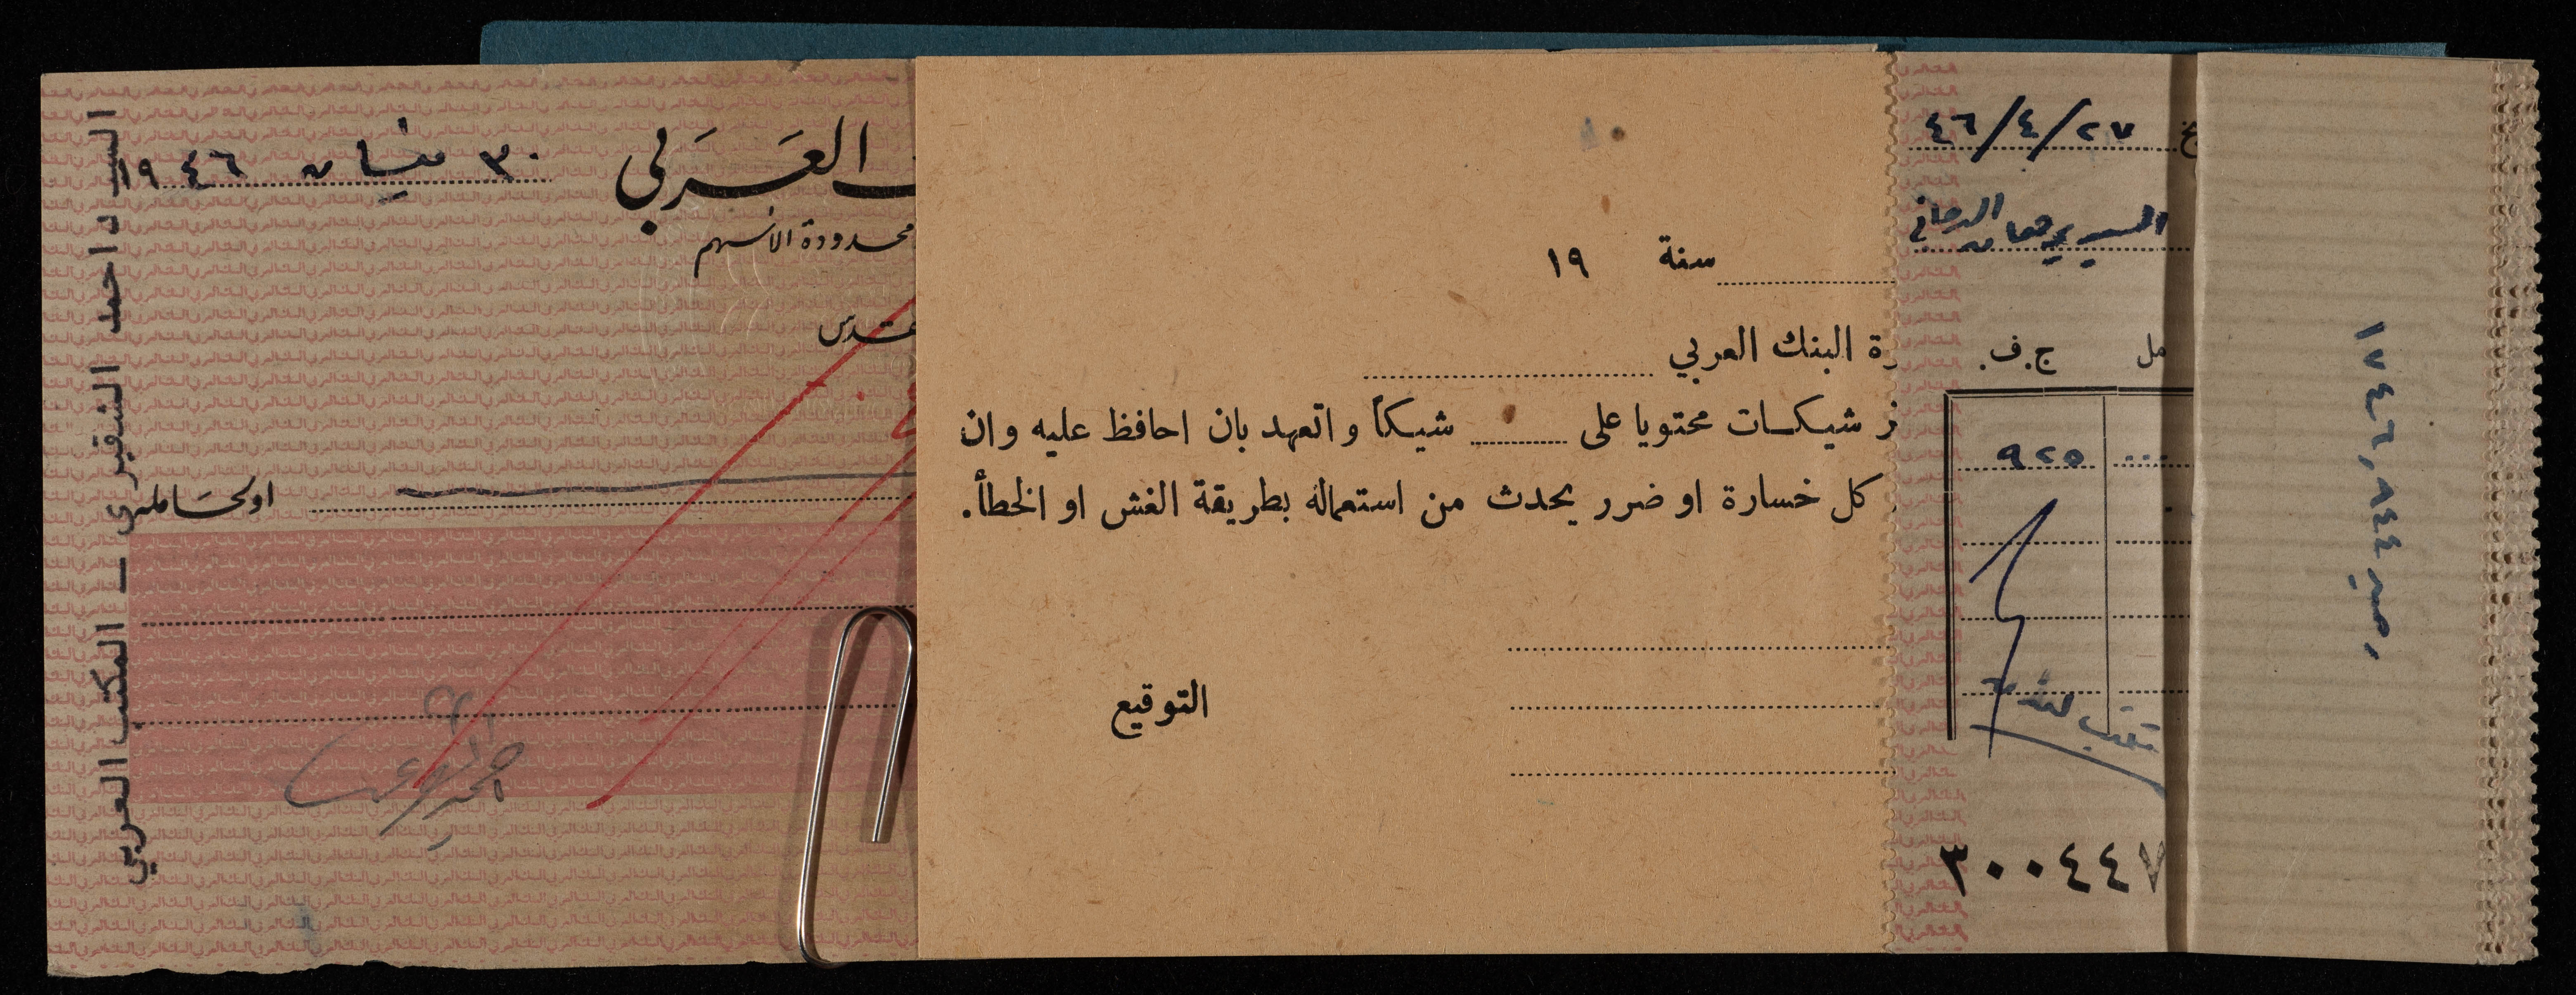 العربي
٣٠ نيسان ١٩٤٦
محدودة الأسهم
القدس
او لحامله
السيد احمد الشقيري — المكتب العربي
سنة ١٩
رة البنك العربي
شيكات محتويا على شيكاً واتعهد بان احافظ عليه وان
كل خسارة او ضرر يحدث من استعماله بطريقة الغش او الخطأ.
التوقيع
٤٦/٤/٢٧
السيد برهان الدجاني
مل ج.ف.
٩٢٥
٣٠٠٤٤٧
١٧٤٦,٨٤٤